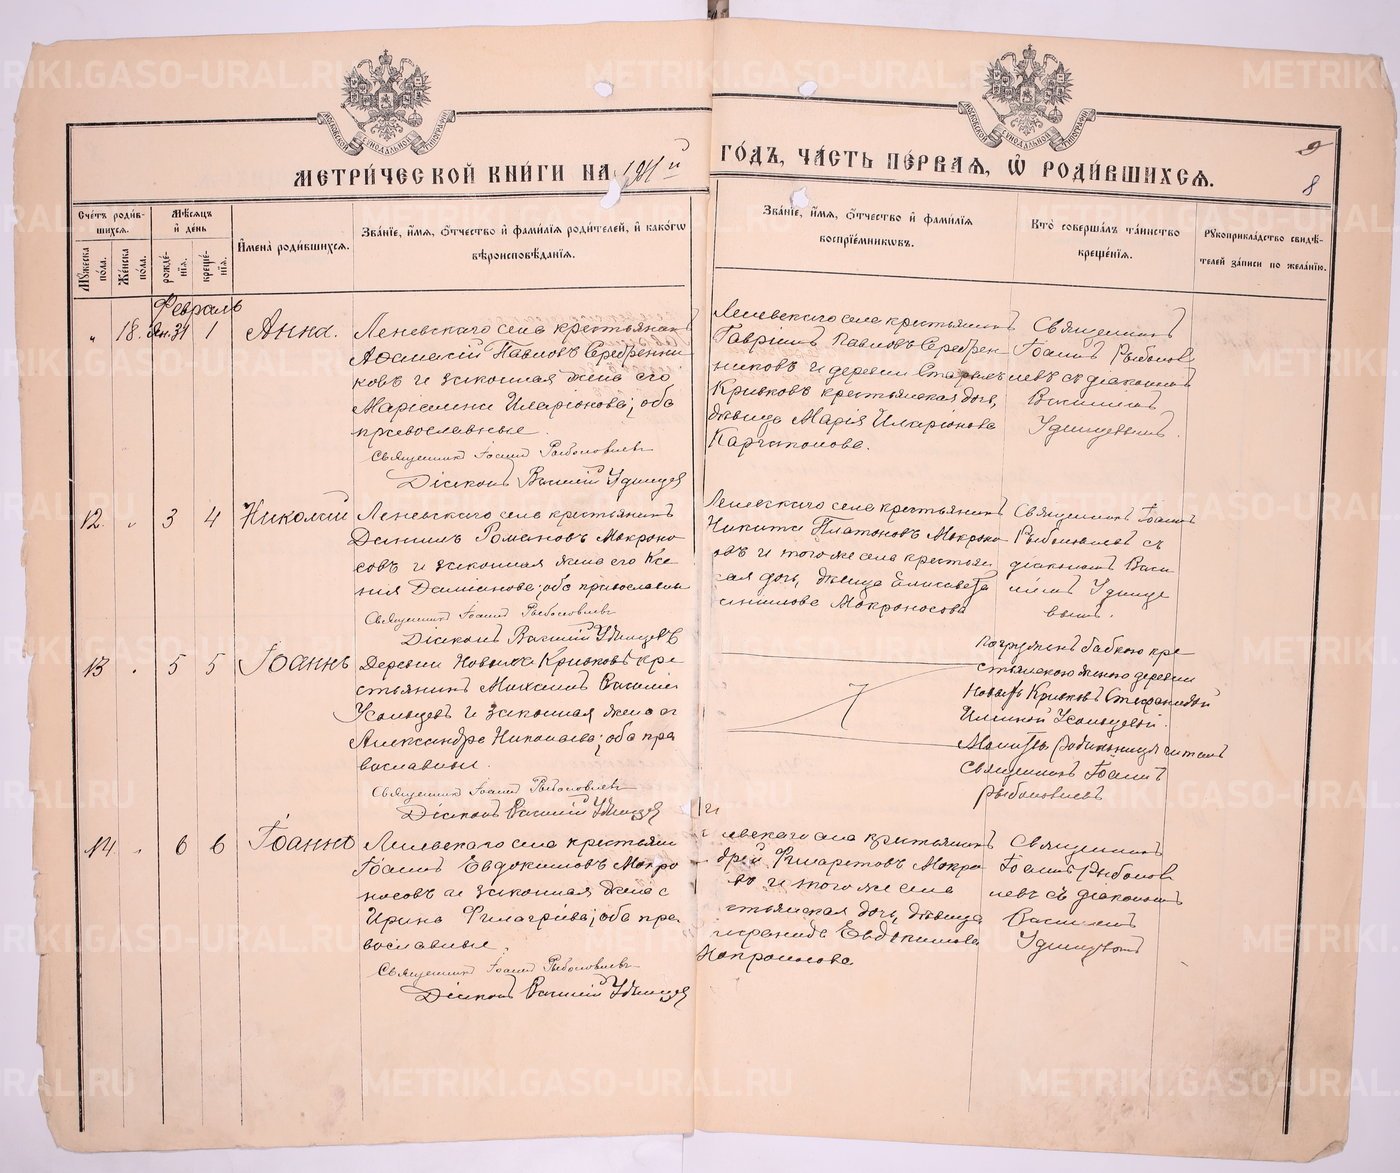 МЕТРИ́ЧЕСКОЙ КНИ́ГИ НА 1911й ГО́ДЪ, ЧА́СТЬ ПЕ́РВАЯ, Ѡ҆ РОДИ́ВШИХСѦ.
9
8
Сче́тъ роди́в-
шихсѧ.
Мꙋ́жеска по́ла.
Же́нска по́ла.
Мѣ́сѧцъ и҆ де́нь
рожде́-нїѧ.
креще́-нїѧ.
И҆мена̀ роди́вшихсѧ.
Зва́нїе, и҆́мѧ, ѻ҆́тчество и҆ фами́лїѧ роди́телей, и҆ како́гѡ
вѣроисповѣ́данїѧ.
Зва́нїе, и҆́мѧ, ѻ҆́тчество и҆ фами́лїѧ
воспрїе́мникѡвъ.
Кто̀ соверша́лъ та́инство
креще́нїѧ.
Рꙋкоприкла́дство свидѣ́-
телей за́писи по жела́нїю.
Февраль
" 18. Ян.31 1 Анна.
Леневскаго села крестьянинъ
Аѳанасій Павловъ Серебренни-
ковъ и законная жена его
Маріамна Иларіонова; оба
православные.
Священникъ Іоаннъ Рыболовлевъ
Діаконъ Василій Удинцевъ
Леневскаго села крестьянинъ
Гавріилъ Павловъ Серебрен-
никовъ и деревни Старыхъ
Кривковъ крестьянская дочь,
дѣвица Марія Иларіонова
Карчаполова.
Священникъ
Іоаннъ Рыболов
левъ съ діакономъ
Василіемъ
Удинцевымъ.
12 " 3 4 Николай
Леневскаго села крестьянинъ
Даніилъ Романовъ Мокроно-
совъ и законная жена его Ксе-
нія Даміанова; оба православны
Священникъ Іоаннъ Рыболовлевъ
Діаконъ Василій Удинцевъ
Леневскаго села крестьянинъ
Никита Платоновъ Мокроно-
овъ и того же села крестьян
ская дочь, дѣвица Елисавета
аніилова Мокроносова
Священникъ Іоаннъ
Рыболовлевъ съ
діакономъ Васи
ліемъ Удинце
вымъ.
13 " 5 5 Іоаннъ
Деревни Новыхъ Кривковъ кре-
стьянинъ Михаилъ Василіи
Усольцевъ и законная жена ег
Александра Николаева; оба пра
вославные.
Священникъ Іоаннъ Рыболовлевъ
Діаконъ Василій Удинцевъ
Погруженъ бабкою кре-
стьянскою женою деревни
Новыхъ Кривковъ Стефанидой
Усольцевой.
Молитвы родильницѣ читалъ
священникъ Іоаннъ
Рыболовлевъ
14 " 6 6 Іоаннъ
Леневскаго села крестьяни
Іоаннъ Евдокимовъ Мокро
носовъ и законная жена е
Ирина Филагріева; оба пра-
вославные.
Священникъ Іоаннъ Рыболовлевъ
Діаконъ Василій Удинцевъ
невскаго села крестьянинъ
дрей Филаретовъ Мокро
въ и того же села
стьянская дочь, дѣвица
Евдокимова
Мокроносова.
Священникъ
Іоаннъ Рыболов
левъ съ діакономъ
Василіемъ
Удинцевымъ
METRIKI.GASO-URAL.RU